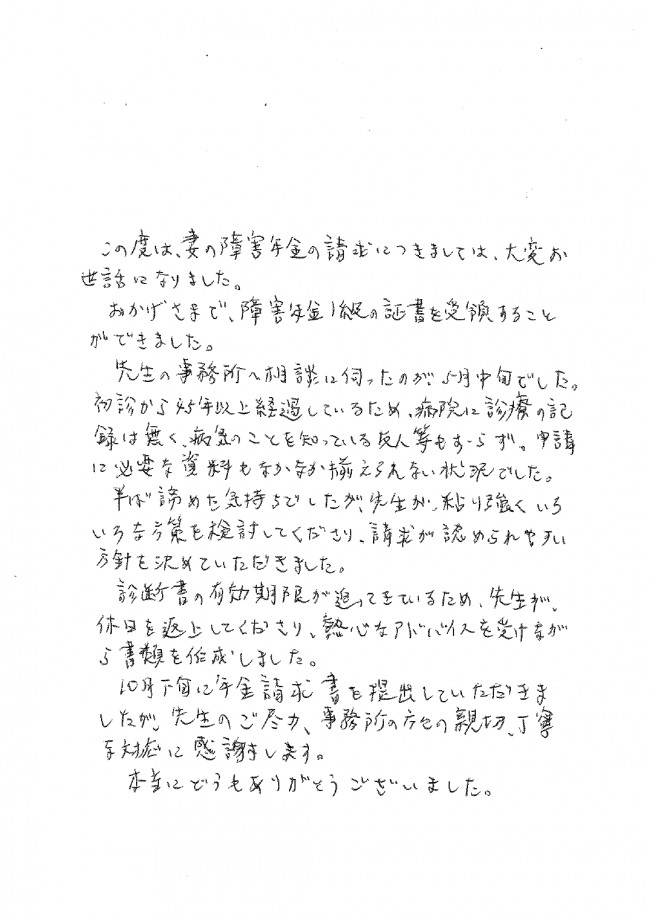 この度は、妻の障害年金の請求につきましては、大変お
世話になりました。
おかげさまで、障害年金1級の証書を受領すること
ができました。
先生の事務所へ相談に伺ったのが、5月中旬でした。
初診から45年以上経過しているため、病院に診療の記
録は無く、病気のことを知っている友人等もおらず。申請
に必要な資料もなかなか揃えられない状況でした。
半ば諦めた気持ちでしたが、先生が、粘り強くいろ
いろな方策を検討してくださり、請求が認められやすい
方針を決めていただきました。
診断書の有効期限が迫ってきているため、先生が、
休日を返上してくださり、熱心なアドバイスを受けなが
ら書類を作成しました。
10月下旬に年金請求書を提出していただきま
したが、先生のご尽力、事務所の方々の親切、丁寧
な対応に感謝します。
本当にどうもありがとうございました。